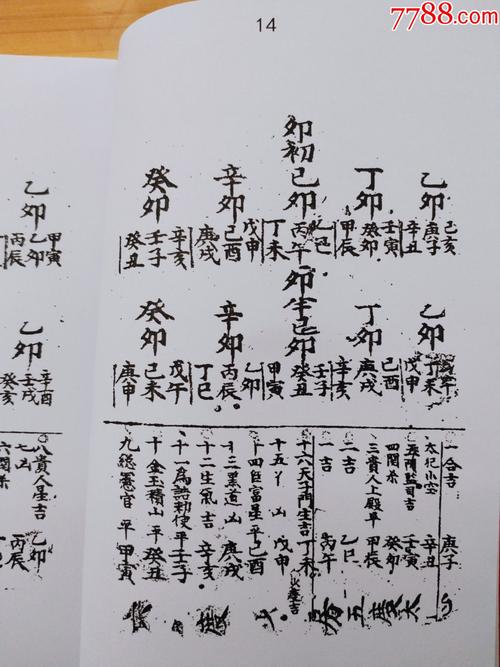 7788.com
14
乙卯
己亥
庚子
辛丑
丁卯
壬寅
癸卯
甲辰
卯初
己卯
乙巳
丙午
丁未
辛卯
戊申
己酉
庚戌
癸卯
辛亥
壬子
癸丑
乙卯
丁未
戊申
丁卯
己酉
庚戌
辛亥
卯半己卯
壬子
癸丑
甲寅
辛卯
乙卯
丙辰
丁巳
癸卯
戊午
己未
庚申
一合吉 庚子
太犯小空 辛丑
監司吉 壬寅
四関杀 癸卯
三貴人上殿 甲辰
二吉 乙巳
一吉 丙午
十六天門生吉 丁未
火度吉
十五丫凶 戊申
十四臣富星平 己酉
十三黑道凶 庚戌
十二生氣吉 辛亥
十一為誥勅使平 壬子
十金玉積山平 癸丑
九総憲官平 甲寅
太度五
火度
乙卯
甲寅
乙卯
丙辰
乙卯
辛酉
壬戌
癸亥
八貴人星吉 乙卯
七凶 丙辰
六関杀